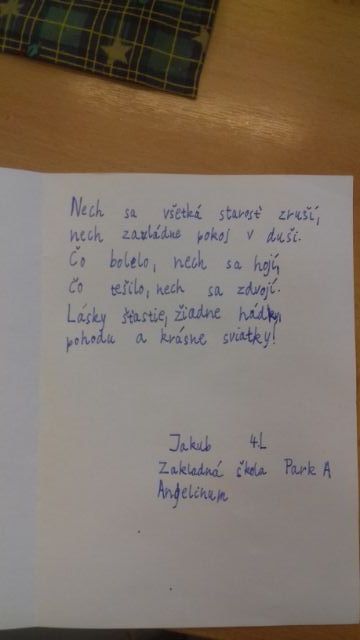 Nech sa všetká starosť zruší,
nech zavládne pokoj v duši.
Čo bolelo, nech sa hojí,
Čo tešilo, nech sa zdvojí.
Lásky šťastie, žiadne hádky,
pohodu a krásne sviatky!
Jakub 4.L
Základná škola Park A
Angelinum